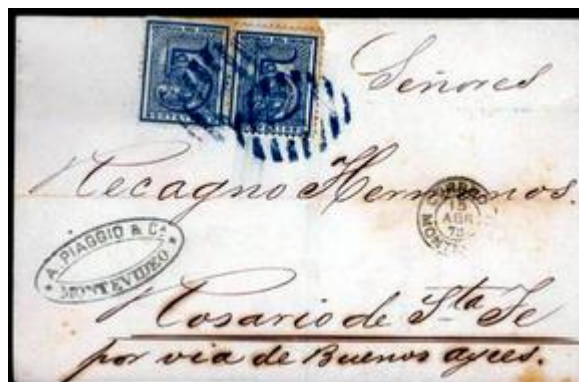 5 5
Señores
Recagno Hermanos.
CORREO
15
AGO
73
MONTEVIDEO
A. PIAGGIO & Ca.
* MONTEVIDEO *
Rosario de Sta Fe
por via de Buenos ayres.